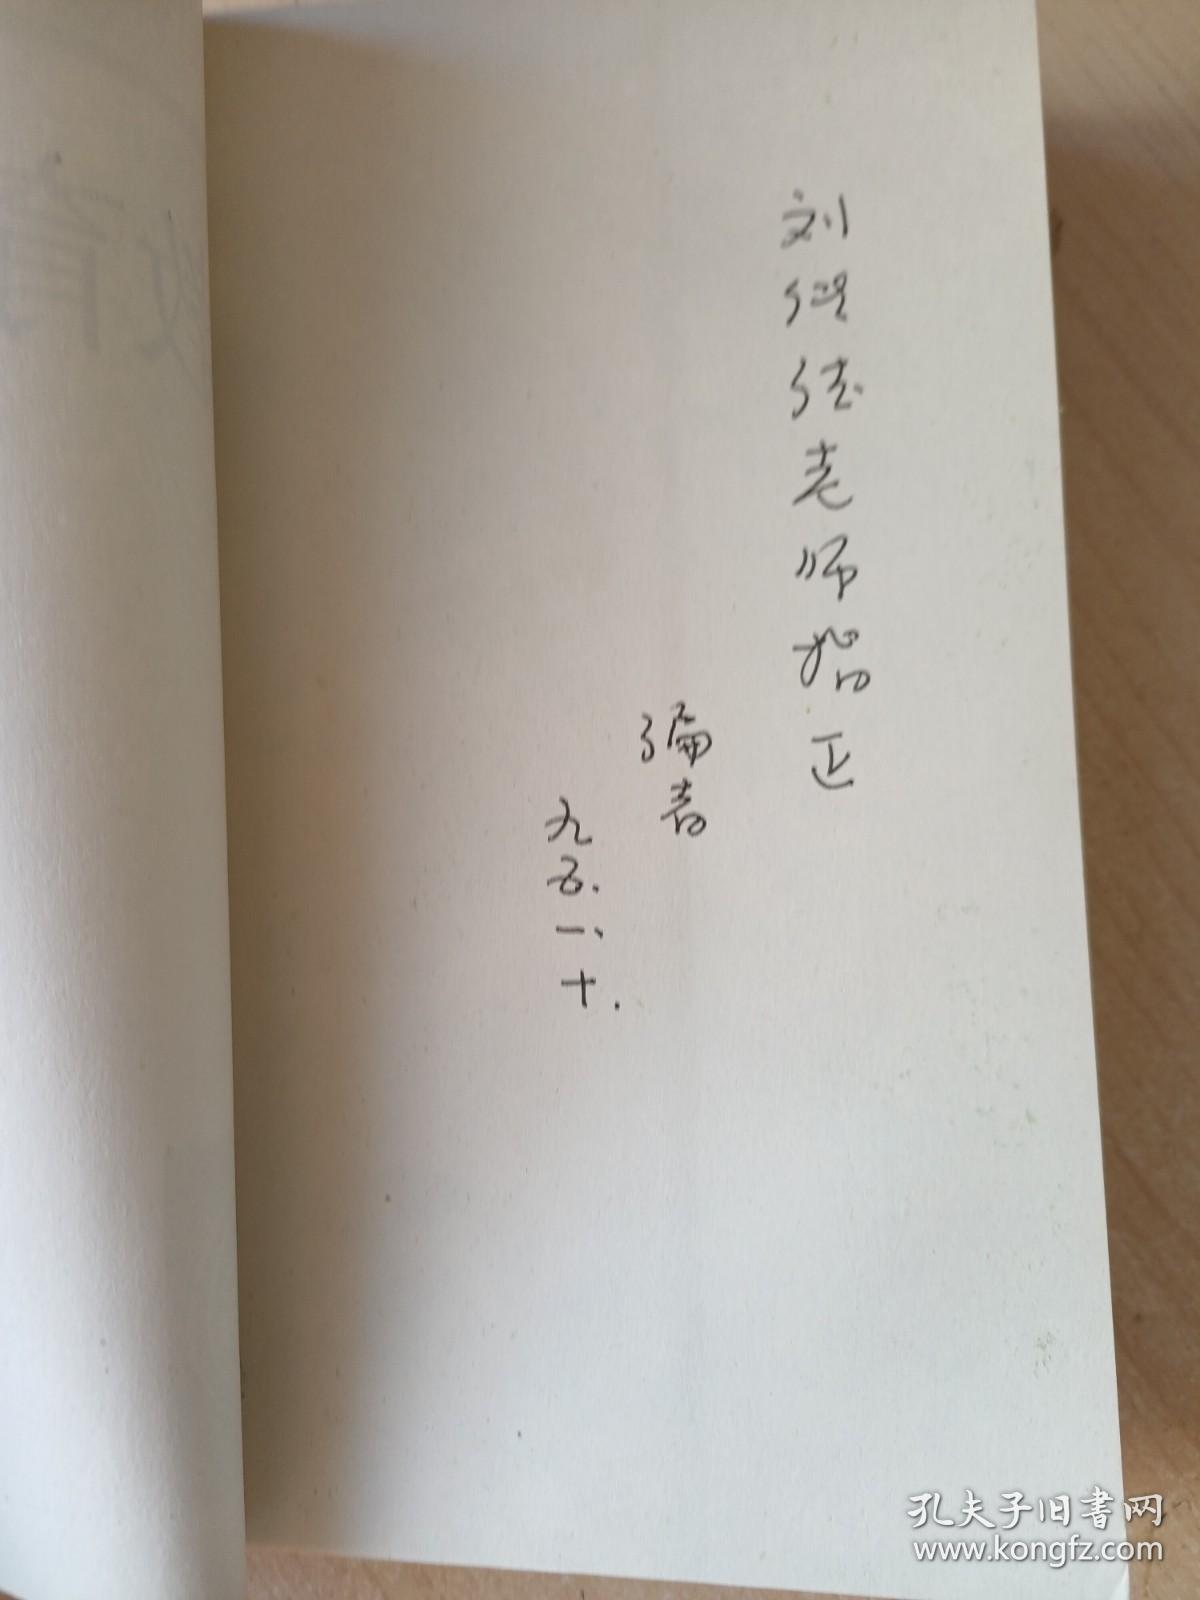 刘德老师指正
编者
九五.一、十.
孔夫子旧书网
www.kongfz.com